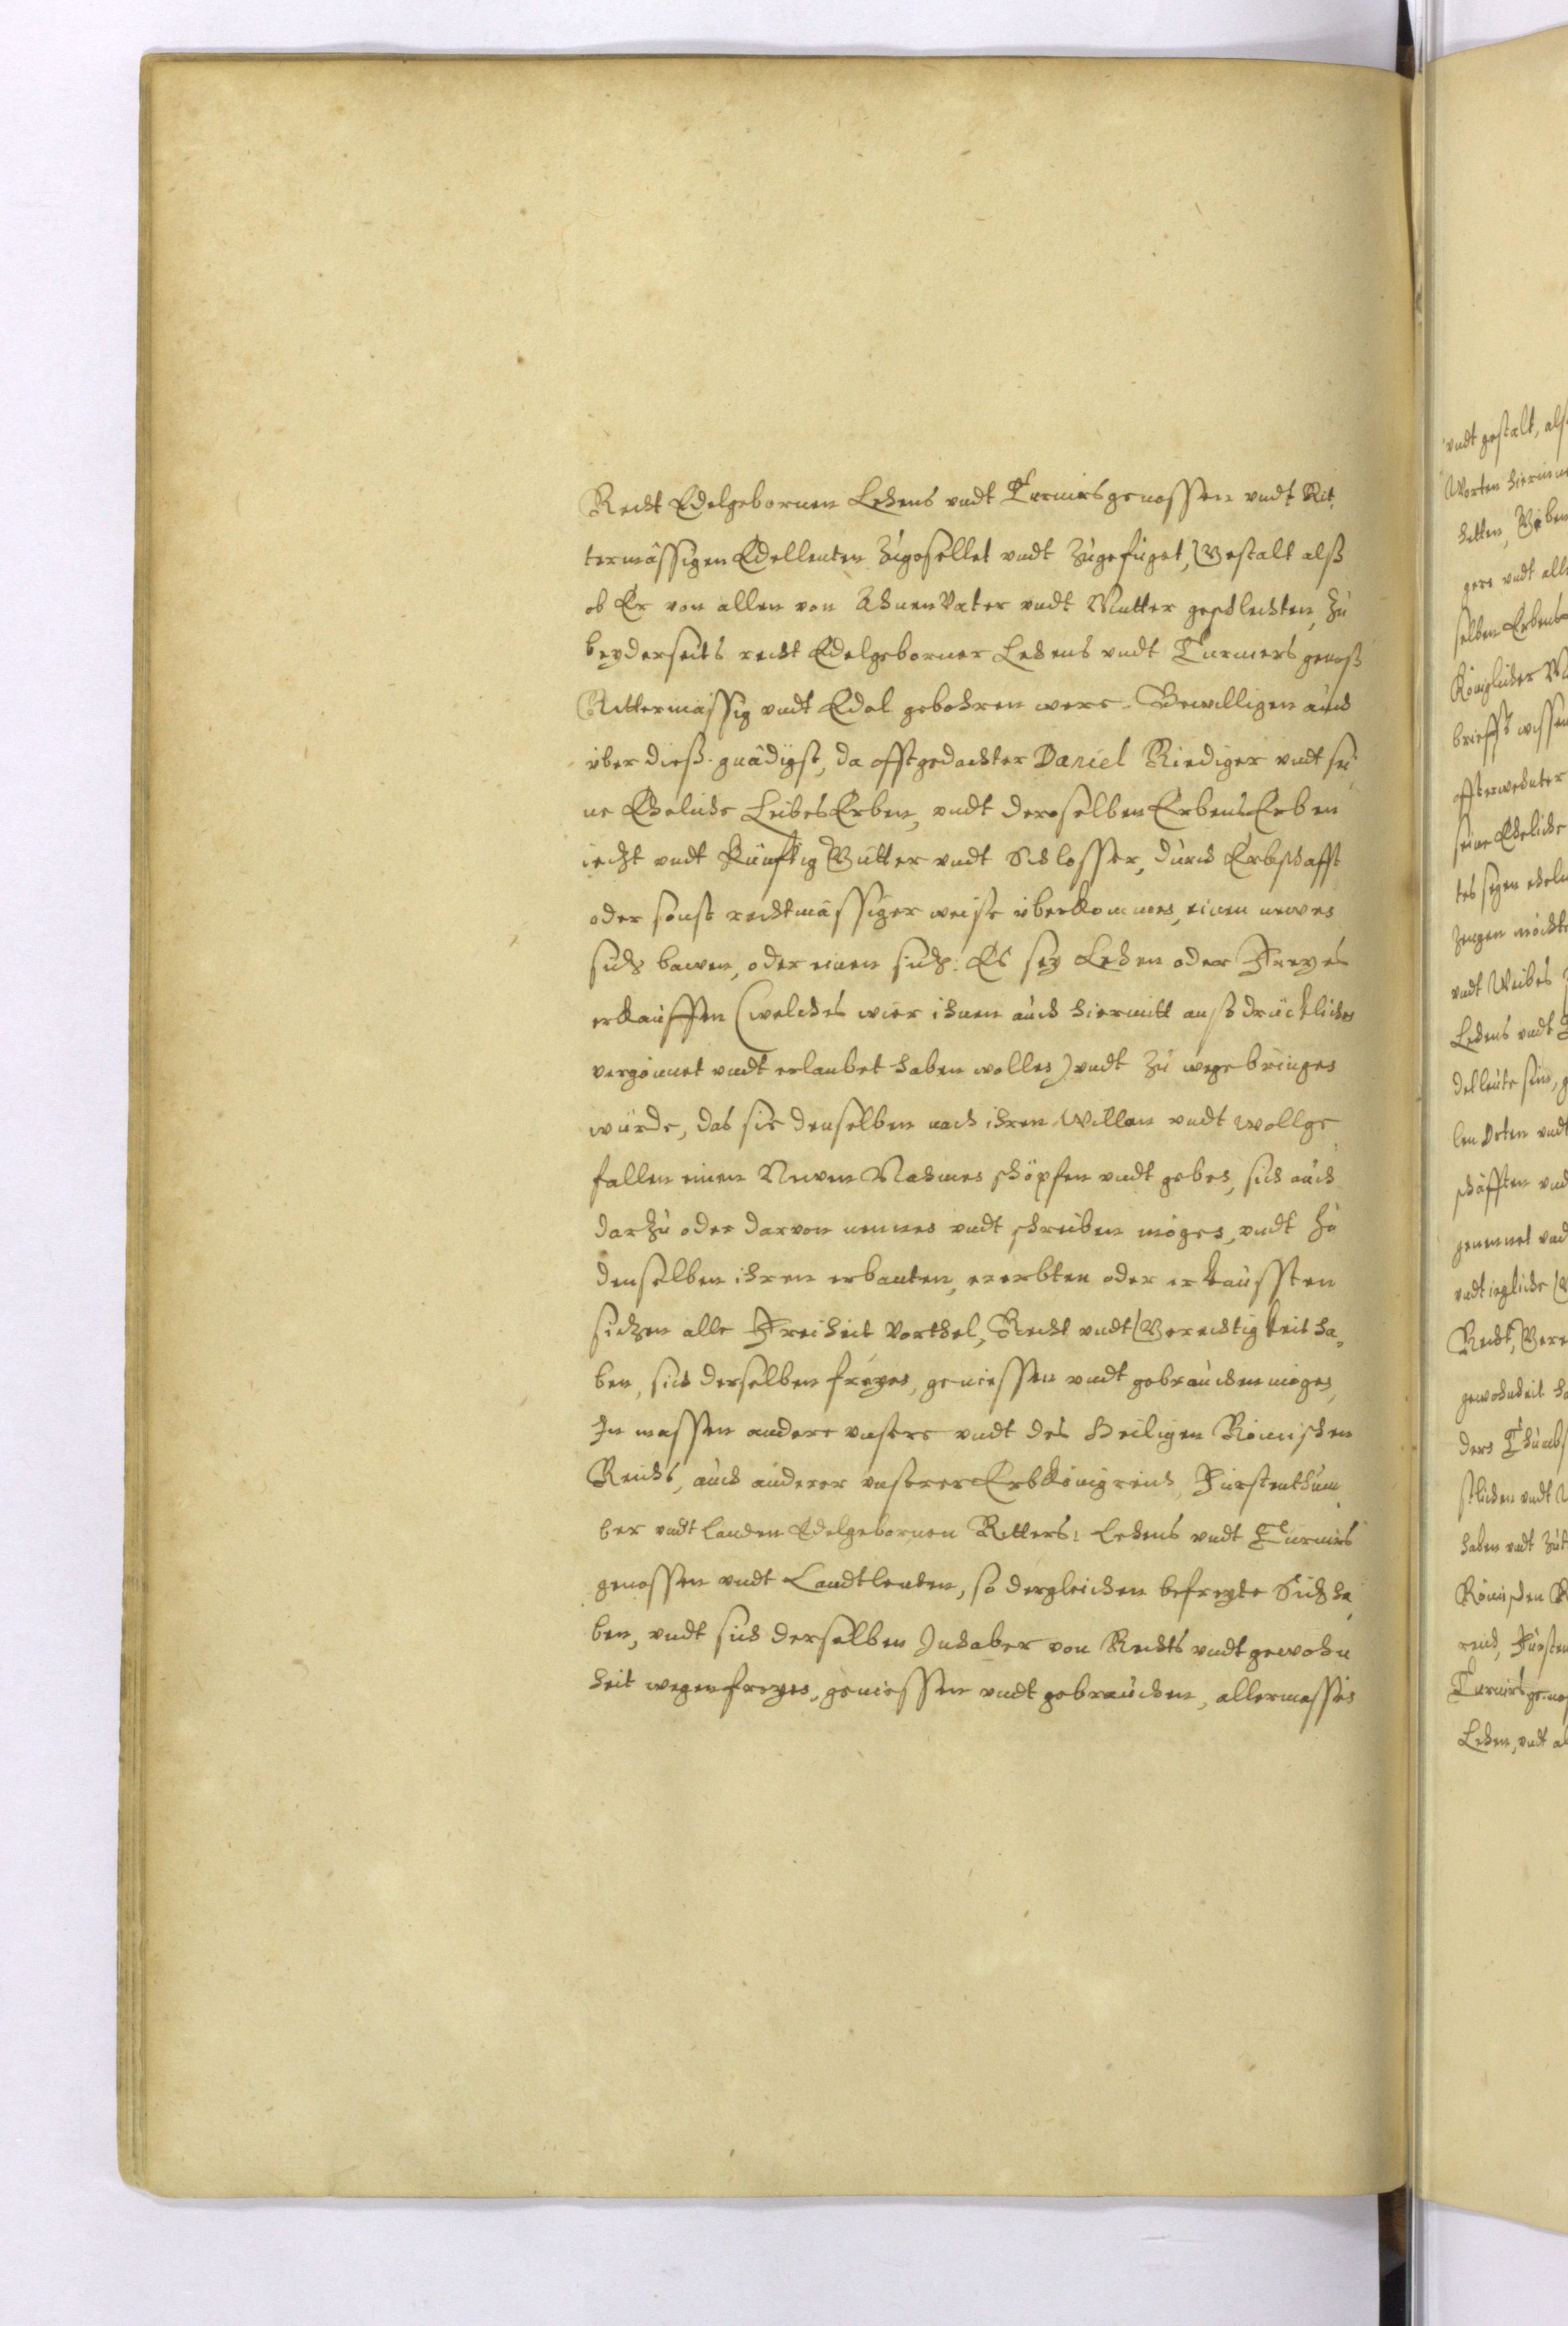 Recht Edelgebornen Lehens vndt Turnirsgenossen vndt Rit¬
termässigen Edelleuten Zugesellet vndt Zugefüget, Gestalt alß
ob Er von allen von Ahnen Vater vndt Mutter geschlechten, zu
beyderseits recht Edelgeborner Lehens vndt Turniersgenoß
Rittermässig vndt Edel gebohren were. Bewilligen auch
über dieß gnädigst, da offtgedachter Daniel Riediger vndt sei¬
ne Eheliche LeibesErben, vndt deroselben ErbensErben
iezt vndt künftig Gütter vndt Schlosser, durch Erbschafft
oder sonst rechtmässiger weise überkommen, einen newen
siz bawen, oder einen siz: Es sey Lehen oder Freyes
erkauffen (welches wier ihnen auch hiermitt außdrücklichen
vergönnet vndt erlaubet haben wollen) vndt zu wege bringen
würde, das sie denselben nach ihren Willen vndt Wollge¬
fallen einen Newen Nahmen schöpfen vndt geben, sich auch
darzu oder darvon nennen vndt schreiben mögen, vndt zu
denselben ihren erbauten, ererbten oder erkaufften
sizen alle Freiheit Vorthel, Recht vndt Gerechtigkeit ha¬
ben, sich derselben freyen, geniessen vndt gebrauchen mögen,
In massen andere vnsere vndt des Heiligen Römischen
Reichs, auch anderer vnserer Erbkönigreich, Fürstenthüm¬
ber vndt Landen Edelgebornen Ritters: Lehens vndt Turnirs
genossen vndt Landtleuten, so dergleichen befreyte Siz ha¬
ben, vndt sich derselben Inhaber von Rechts vndt gewohn
heit wegen freyen, geniessen vndt gebrauchen, allermassen
vndt gestalt, alß
Worten hierinne
hetten, Geben
gere vndt alle
selben Erbens
Königlicher Ma
brieffs wissen
offterwehnter
seine Eheliche
tes segen ehel
zeugen möchte
vndt Weibes
Lehens vndt
delleute sein, g
len Orten vndt
schäfften vnd
genennet vnd
vndt iegliche
Recht, Gere
gewohnheit ha
ders Thumbs
stlichen vndt
haben vndt zut
Römischen R
reich, Fürsten
Turnirsgenos
Lehen, vndt al